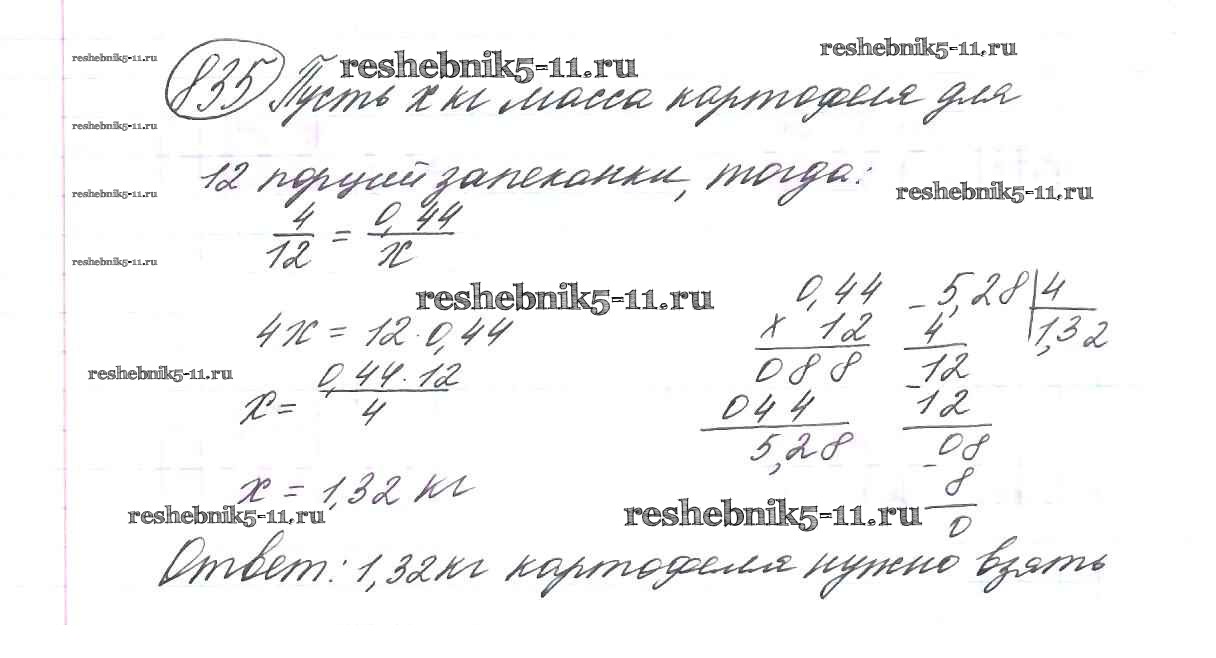 reshebnik5-11.ru
reshebnik5-11.ru
reshebnik5-11.ru
835 Пусть x кг масса картофеля для
reshebnik5-11.ru
12 порций запеканки, тогда:
reshebnik5-11.ru
reshebnik5-11.ru
4/12 = 0,44/x
reshebnik5-11.ru
reshebnik5-11.ru
4x = 12·0,44
reshebnik5-11.ru
x = 0,44·12/4
0,44
x 12
088
044
5,28
- 5,28 | 4
4 1,32
- 12
12
- 08
8
0
x = 1,32 кг
reshebnik5-11.ru
reshebnik5-11.ru
Ответ: 1,32 кг картофеля нужно взять